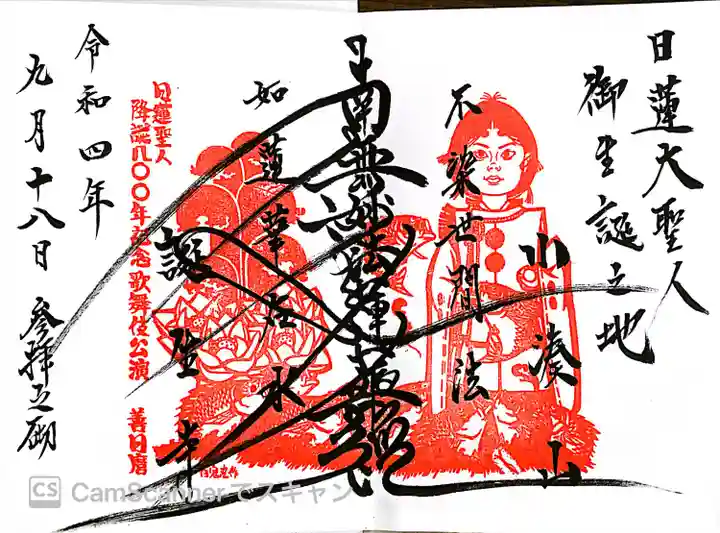 日蓮大聖人
御生誕之地
小湊山
不染世間法
南無妙法蓮華経
如蓮華在水
誕生寺
日蓮聖人
降誕八〇〇年記念歌舞伎公演 善日麿
令和四年
九月十八日 参拝之砌
CS CamScannerでスキャン